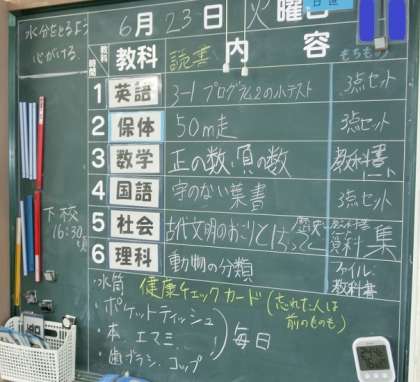 水分をとるよう
心がける
6月23日 火曜日
日世
教科 時間
教科 読書 内容
もちもの
1 英語 3-1 プログラム2の小テスト 3点セット
2 保体 50m走 3点セット
3 数学 正の数、負の数 教科書
4 国語 字のない葉書 3点セット
5 社会 古代文明のおこりと 歴史 教科書 資料集
6 理科 動物の分類 ファイル 教科書
下校
16:30
・水筒 健康チェックカード(忘れた人は前のものも)
・ポケットティッシュ
・本、エマミ
・歯ブラシ、コップ
毎日